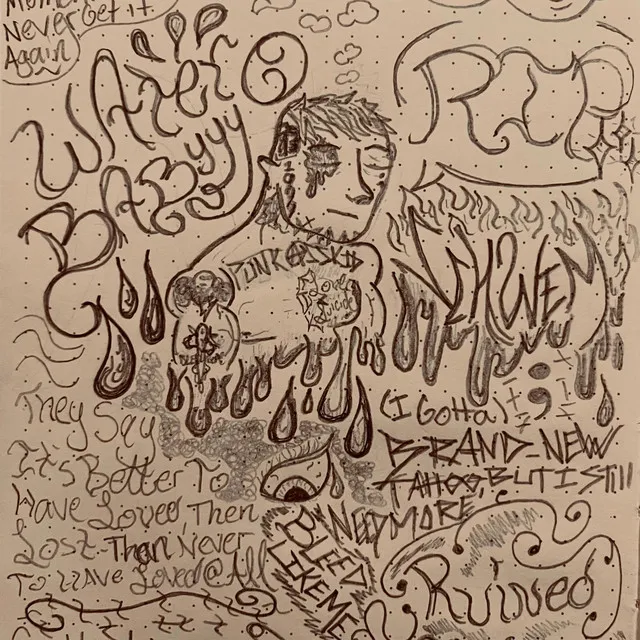 Never Get it
Again
WAteR
BAByyy
RIP
They Say
It's Better To
Have Loved, Then
Lost Than Never
To HAVE Loved @ All
(I GOttA)
BRAND-NEW
TAttOO, BUT I Still
NEED MORE
BLEED
LIKE ME
Ruined